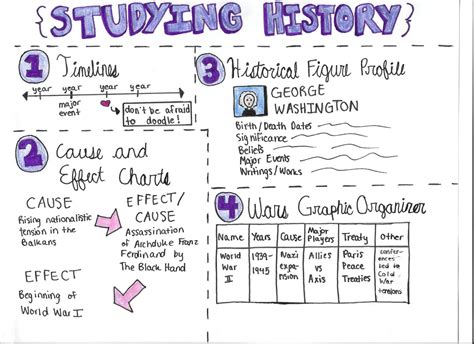 {STUDYING HISTORY}
1 Timelines
year year year year
major
event
don't be afraid
to doodle!
2 Cause and
Effect Charts
CAUSE
Rising nationalistic
tension in the
Balkans
EFFECT/
CAUSE
Assassination
of Archduke Franz
Ferdinand by
The Black Hand
EFFECT
Beginning of
World War I
3 Historical Figure Profile
GEORGE
WASHINGTON
Birth/Death Dates
Significance
Beliefs
Major Events
Writings/Works
4 Wars Graphic Organizer
Name Years Cause Major Players Treaty Other
World War II
1939-1945
Nazi expansion
Allies vs Axis
Paris Peace Treaties
conferences led to Cold War tensions